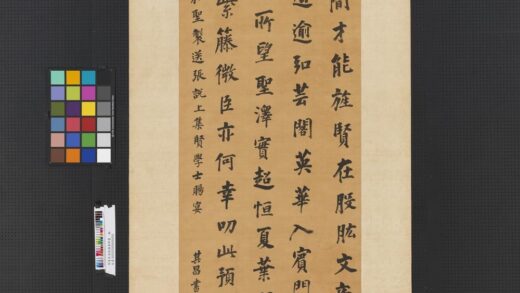 才能旌賢在股肱文
逾知芸閣英華入賓門
所望聖澤實超恒夏葉
紫藤微臣亦何幸叨此預
聖製送張説上集賢學士賜宴
其昌書